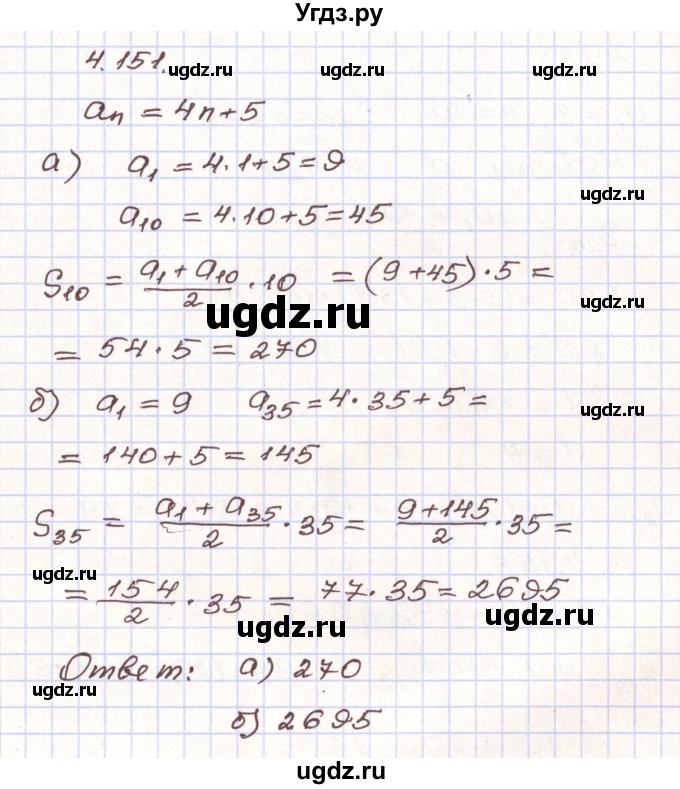 Угдз.ру
4.151.
ugdz.ru ugdz.ru ugdz.ru
aₙ = 4n+5
а) a₁ = 4·1+5=9
ugdz.ru
a₁₀ = 4·10+5=45
S₁₀ = (a₁+a₁₀)/2 · 10 = (9+45)·5 =
ugdz.ru ugdz.ru
= 54·5 = 270
б) a₁ = 9 a₃₅ = 4·35+5 =
ugdz.ru
= 140+5 = 145
S₃₅ = (a₁+a₃₅)/2 · 35 = (9+145)/2 · 35 =
ugdz.ru
= 154/2 · 35 = 77·35 = 2695
ugdz.ru ugdz.ru
Ответ: а) 270
ugdz.ru
б) 2695
ugdz.ru
ugdz.ru